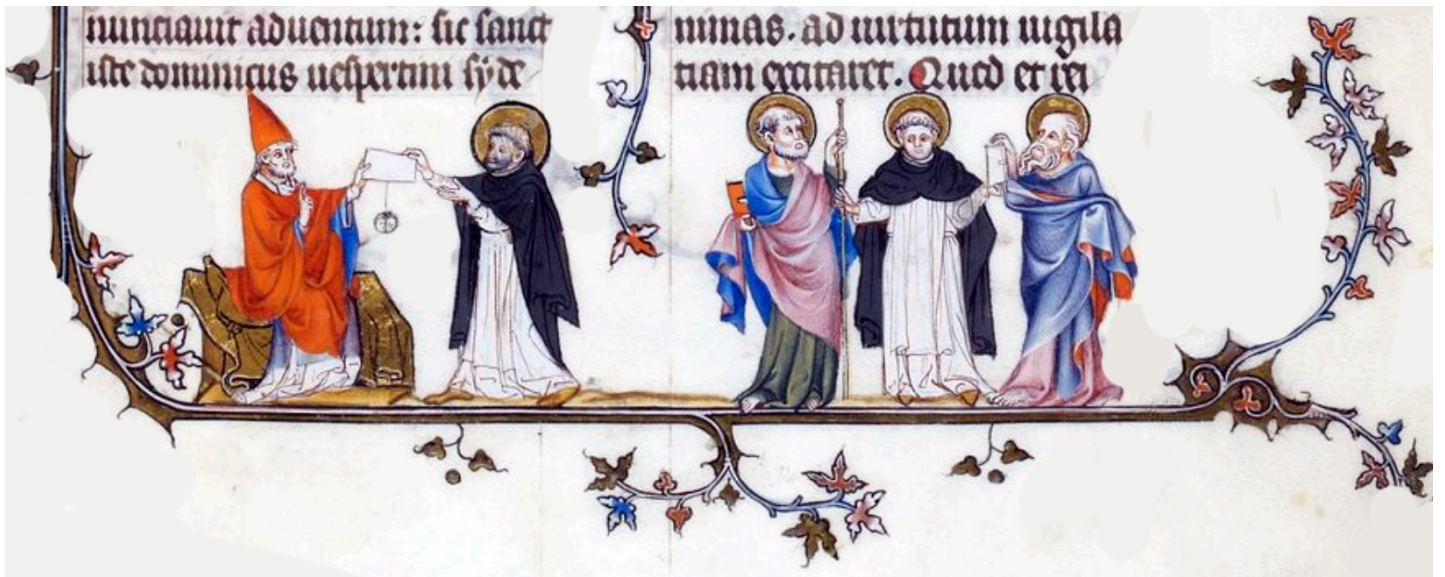 nunciauit aduentum: sic sanct
iste dominicus uespertini syde
minas. ad uirtutum uigila
tiam excitaret. Quod et rei